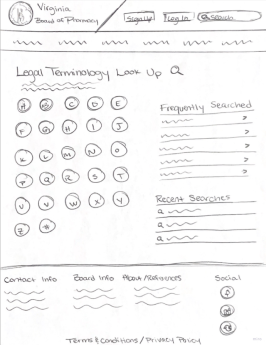 Virginia
Board of Pharmacy
Sign Up
Log In
Search
Legal Terminology Look Up
A B C D E
F G H I J
K L M N O
P Q R S T
U V W X Y
Z #
Frequently Searched
Recent Searches
Contact Info
Board Info
About/References
Social
Terms & Conditions / Privacy Policy